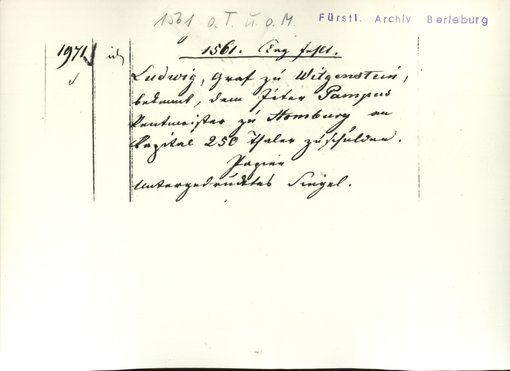 1561 o. T. u. o. M.
Fürstl. Archiv Berleburg
1971
1561. Tag fehlt.
Ludwig, Graf zu Witgenstein,
bekennt, dem Peter Pampus
Rentmeister zu Homburg an
Kapital 250 Thaler zu schulden.
Papier
Untergedrucktes Siegel.